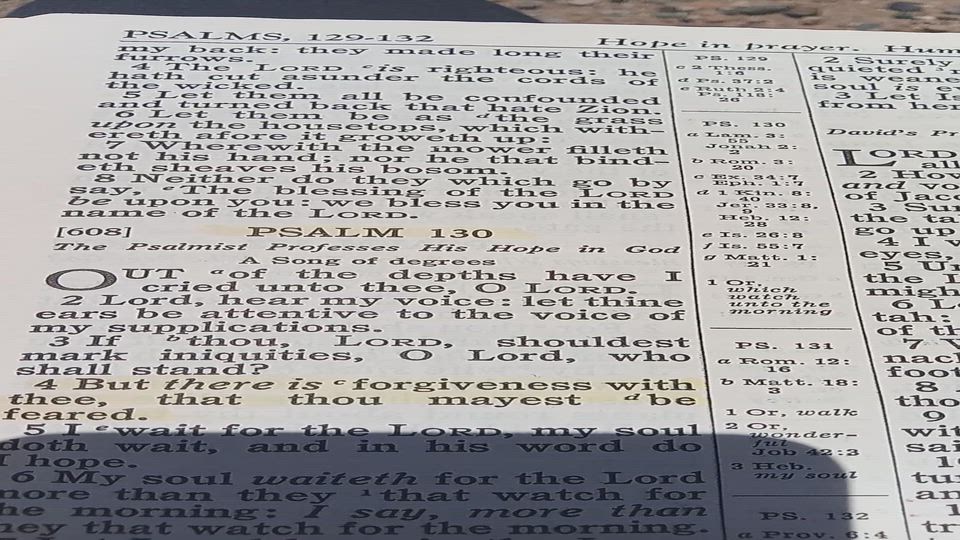 PSALMS, 129-132
Hope in prayer. Hum
my back: they made long their
furrows.
4 The LORD c is righteous: he
hath cut asunder the cords of
the wicked.
5 Let them all be confounded
and turned back that hate Zion.
6 Let them be as d the grass
upon the housetops, which with-
ereth afore it groweth up:
7 Wherewith the mower filleth
not his hand; nor he that bind-
eth sheaves his bosom.
8 Neither do they which go by
say, e The blessing of the LORD
be upon you: we bless you in the
name of the LORD.
[608] PSALM 130
The Psalmist Professes His Hope in God
A Song of degrees
OUT a of the depths have I
cried unto thee, O LORD.
2 Lord, hear my voice: let thine
ears be attentive to the voice of
my supplications.
3 If b thou, LORD, shouldest
mark iniquities, O Lord, who
shall stand?
4 But there is c forgiveness with
thee, that thou mayest d be
feared.
5 I e wait for the LORD, my soul
doth wait, and in his word do
I hope.
6 My soul waiteth for the Lord
more than they 1 that watch for
the morning: I say, more than
they that watch for the morning.
PS. 129
c 2 Thess.
1:6
d Ps. 37:2
e Ruth 2:4
Ps. 118:
26
PS. 130
a Lam. 3:
55
Jonah 2:
2
b Rom. 3:
20
c Ex. 34:7
Eph. 1:7
d 1 Kin. 8:
40
Jer. 33:8,
9
Heb. 12:
28
e Is. 26:8
f Is. 55:7
g Matt. 1:
21
1 Or,
which
watch
unto the
morning
PS. 131
a Rom. 12:
16
b Matt. 18:
3
1 Or, walk
2 Or,
wonder-
ful
Job 42:3
3 Heb.
my soul
PS. 132
a Prov. 6:4
2 Surely
quieted
is wean
soul is ev
3 Let Is
from he
David's Pr
LORD
all
2 How
and vo
of Jaco
3 Sur
the ta
go up
4 I w
eyes,
5 Un
the L
migh
6 L
tah:
of th
7 W
nacl
foot
8
tho
9
wit
sai
10
tu
an
1
tr